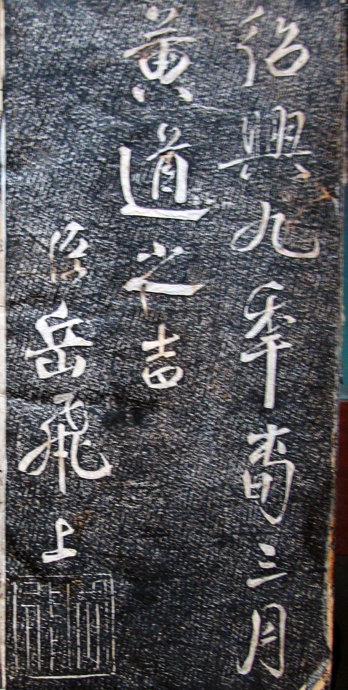 紹興九秊旾三月
黃道之吉
臣岳飛上